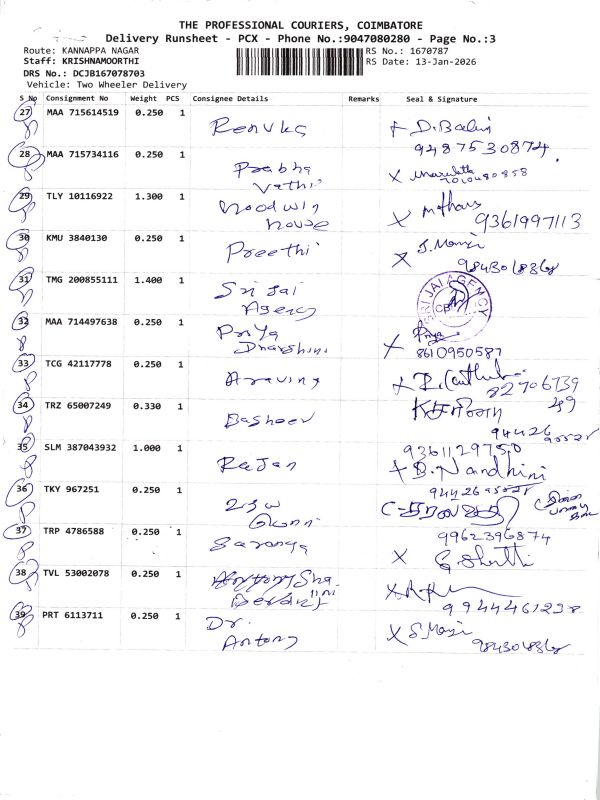 THE PROFESSIONAL COURIERS, COIMBATORE
Delivery Runsheet - PCX - Phone No.:9047080280 - Page No.:3
Route: KANNAPPA NAGAR RS No.: 1670787
Staff: KRISHNAMOORTHI RS Date: 13-Jan-2026
DRS No.: DCJB167078703
Vehicle: Two Wheeler Delivery
S No Consignment No Weight PCS Consignee Details Remarks Seal & Signature
27 MAA 715614519 0.250 1 Renuka D. Balu
9487530874
28 MAA 715734116 0.250 1 Prabha
Vathi
29 TLY 10116922 1.300 1 Woodwin
House
9361997113
30 KMU 3840130 0.250 1 Preethi S. Mani
9843018368
31 TMG 200855111 1.400 1 Sri Jai
Agency
SRI JAI AGENCY
CBE
32 MAA 714497638 0.250 1 Priya
Dharshini
Priya
8610950587
33 TCG 42117778 0.250 1 Aravind
34 TRZ 65007249 0.330 1 Basheer
35 SLM 387043932 1.000 1 Rajan B. Nandhini
36 TKY 967251 0.250 1
37 TRP 4786588 0.250 1 Saranya
9962396874
38 TVL 53002078 0.250 1 Antony Sha
9944461238
39 PRT 6113711 0.250 1 Dr.
Antony
S. Mani
9843018368